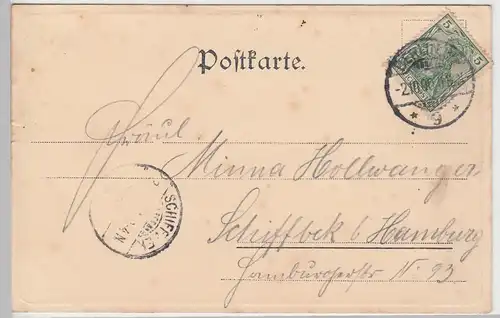 Postkarte.
5 5
9
Fräul.
Minna Hollwanger
Schiffbek b/ Hamburg
Hamburgerstr N. 93
SCHIFFBEK